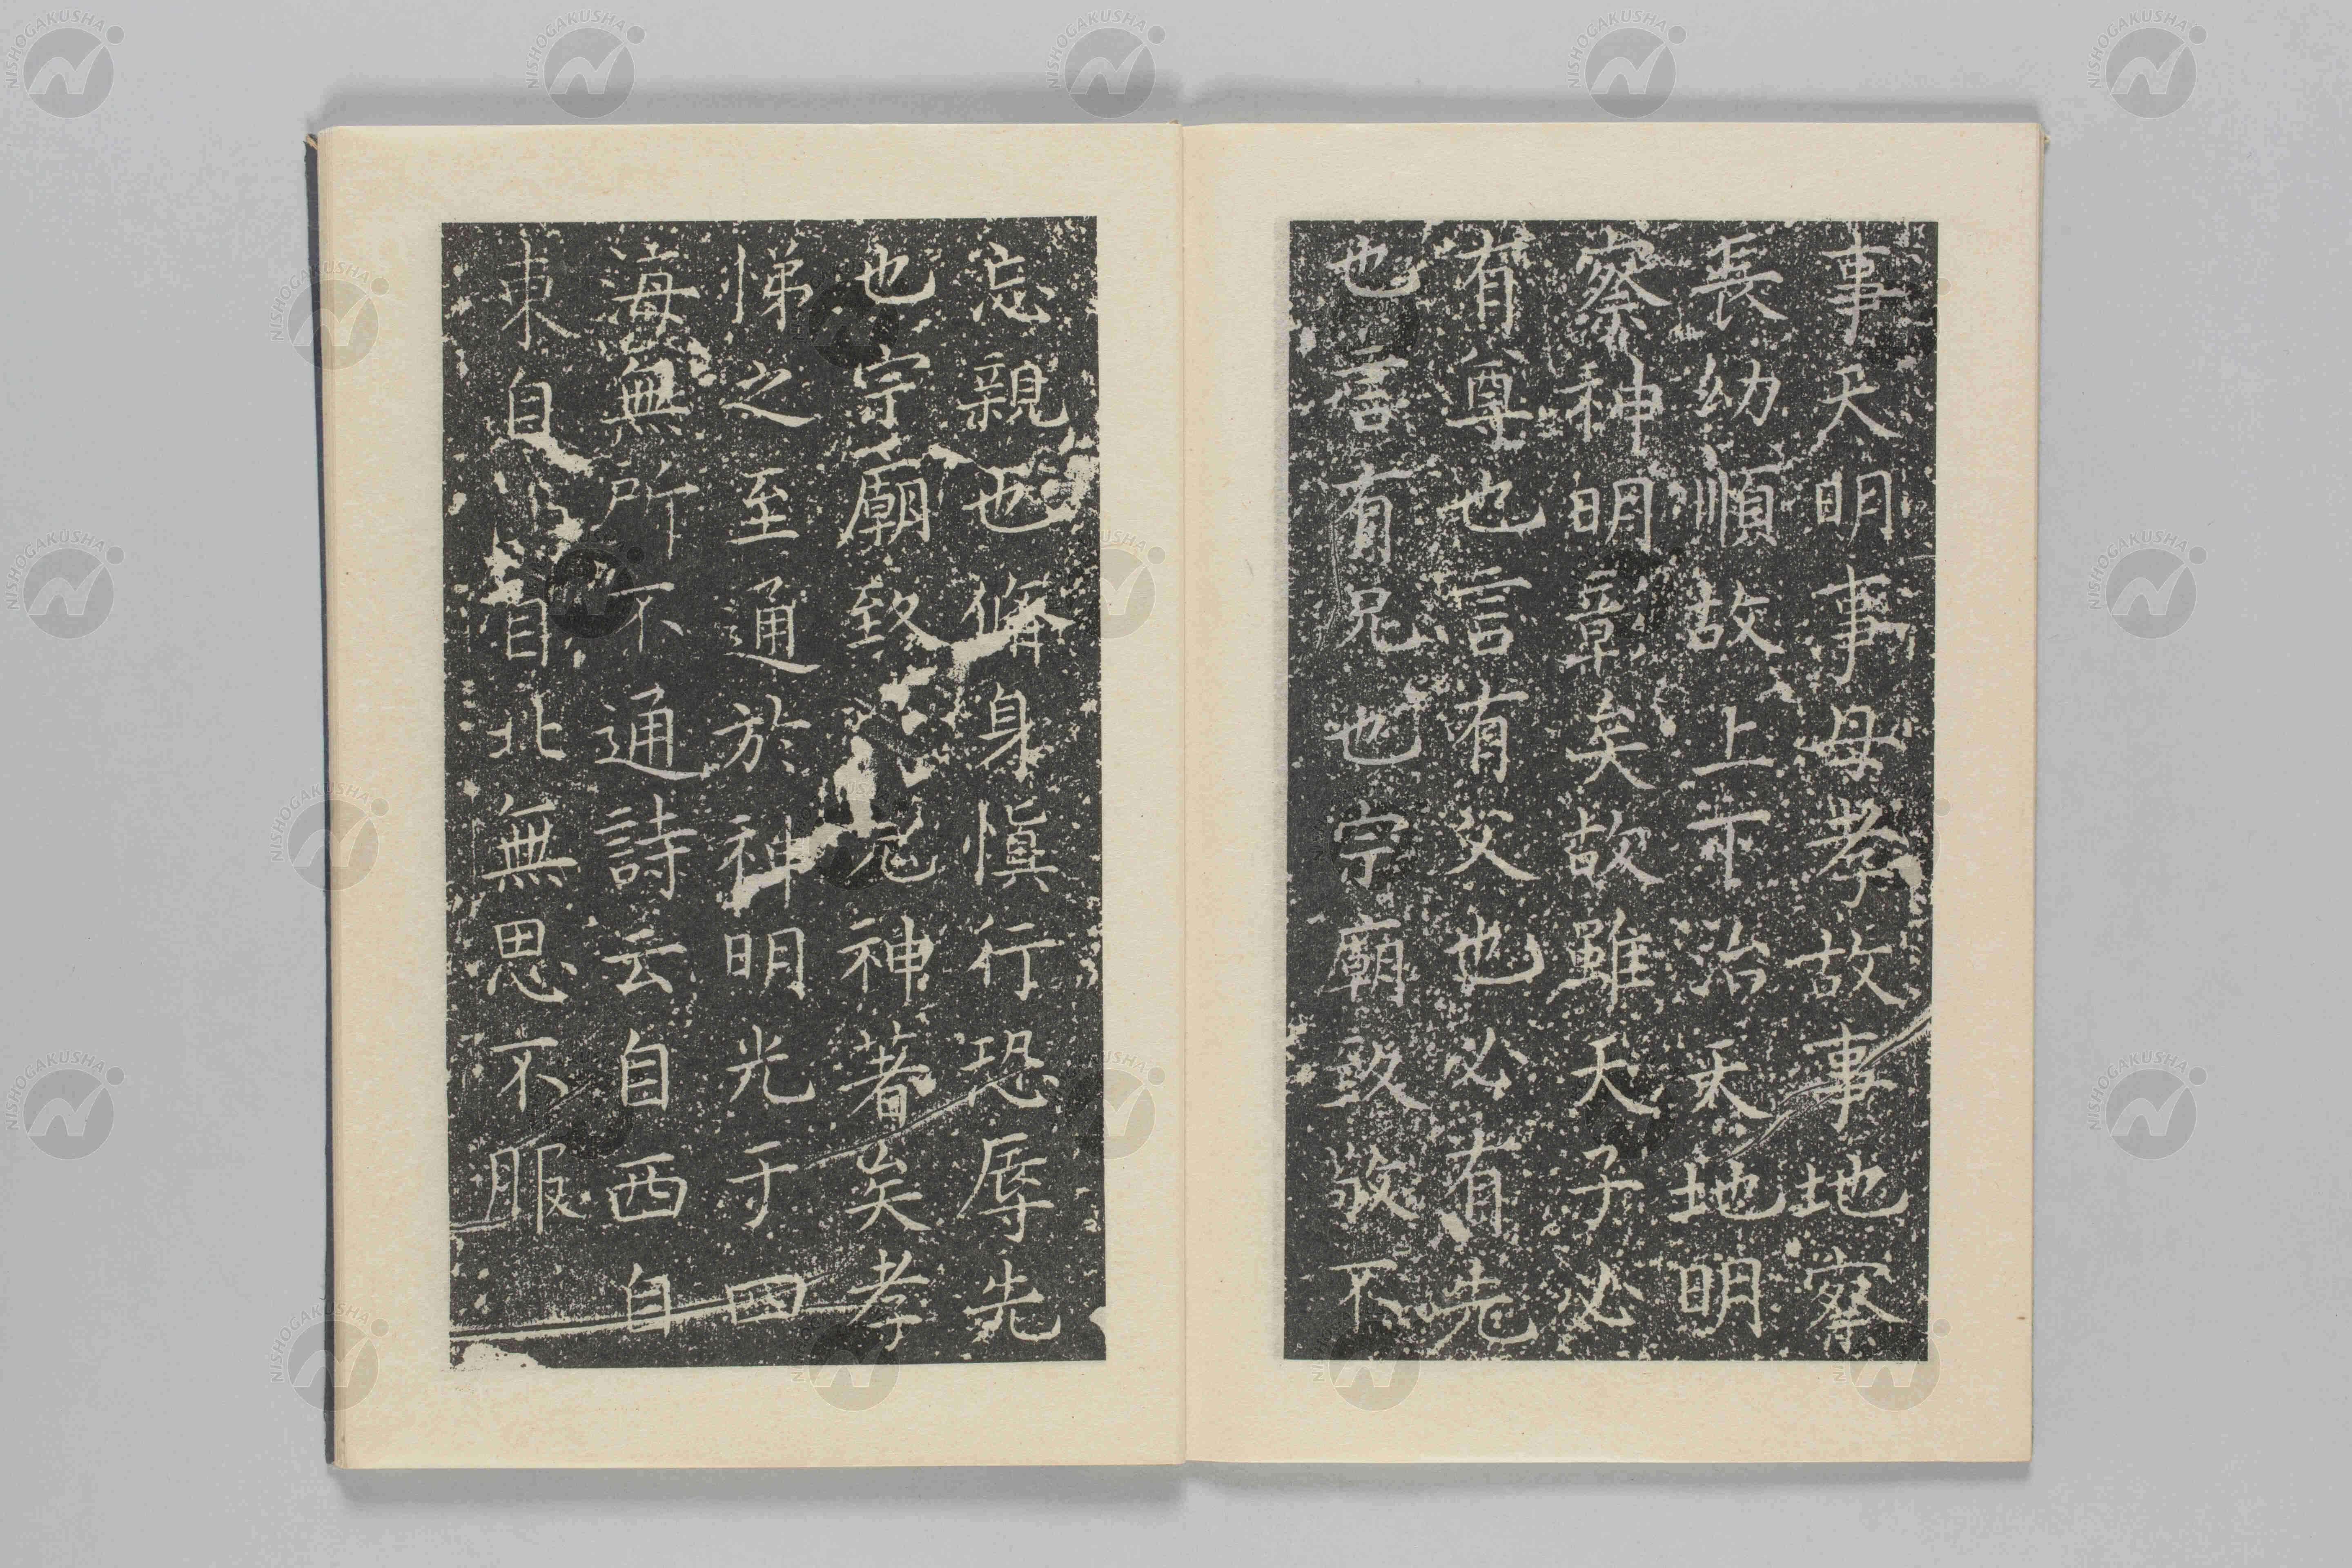 事天明事母孝故事地察
長幼順故上下治天地明
察神明彰矣故雖天子必
有尊也言有父也必有先
也言有兄也宗廟致敬不
忘親也脩身愼行恐辱先
也宗廟致鬼神著矣孝
悌之至通於神明光于四
海無所不通詩云自西自
東自自北無思不服
NISHOGAKUSHA